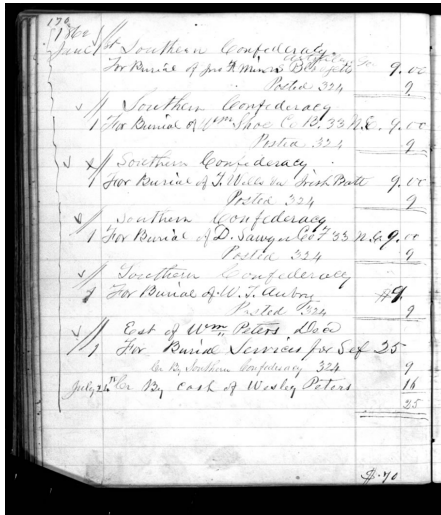 170
1860
June 1st Southern Confederacy
For Burial of Jno R Minor 9.00
Posted 324 9
Southern Confederacy
1 For Burial of Wm Shoe Co B. 33 N.C. 9.00
Posted 324 9
Southern Confederacy
1 For Burial of T. Wells Va Irish Batt 9.00
Posted 324 9
Southern Confederacy
1 For Burial of D. Sawyer Co F 33 N.C. 9.00
Posted 324 9
Southern Confederacy
1 For Burial of W. T. Aubry $9
Posted 324 9
Est of Wm Peters Decd
1 For Burial Services for Self 25
Cr By Southern Confederacy 324 9
July 24th Cr By Cash of Wesley Peters 16
25
$.70